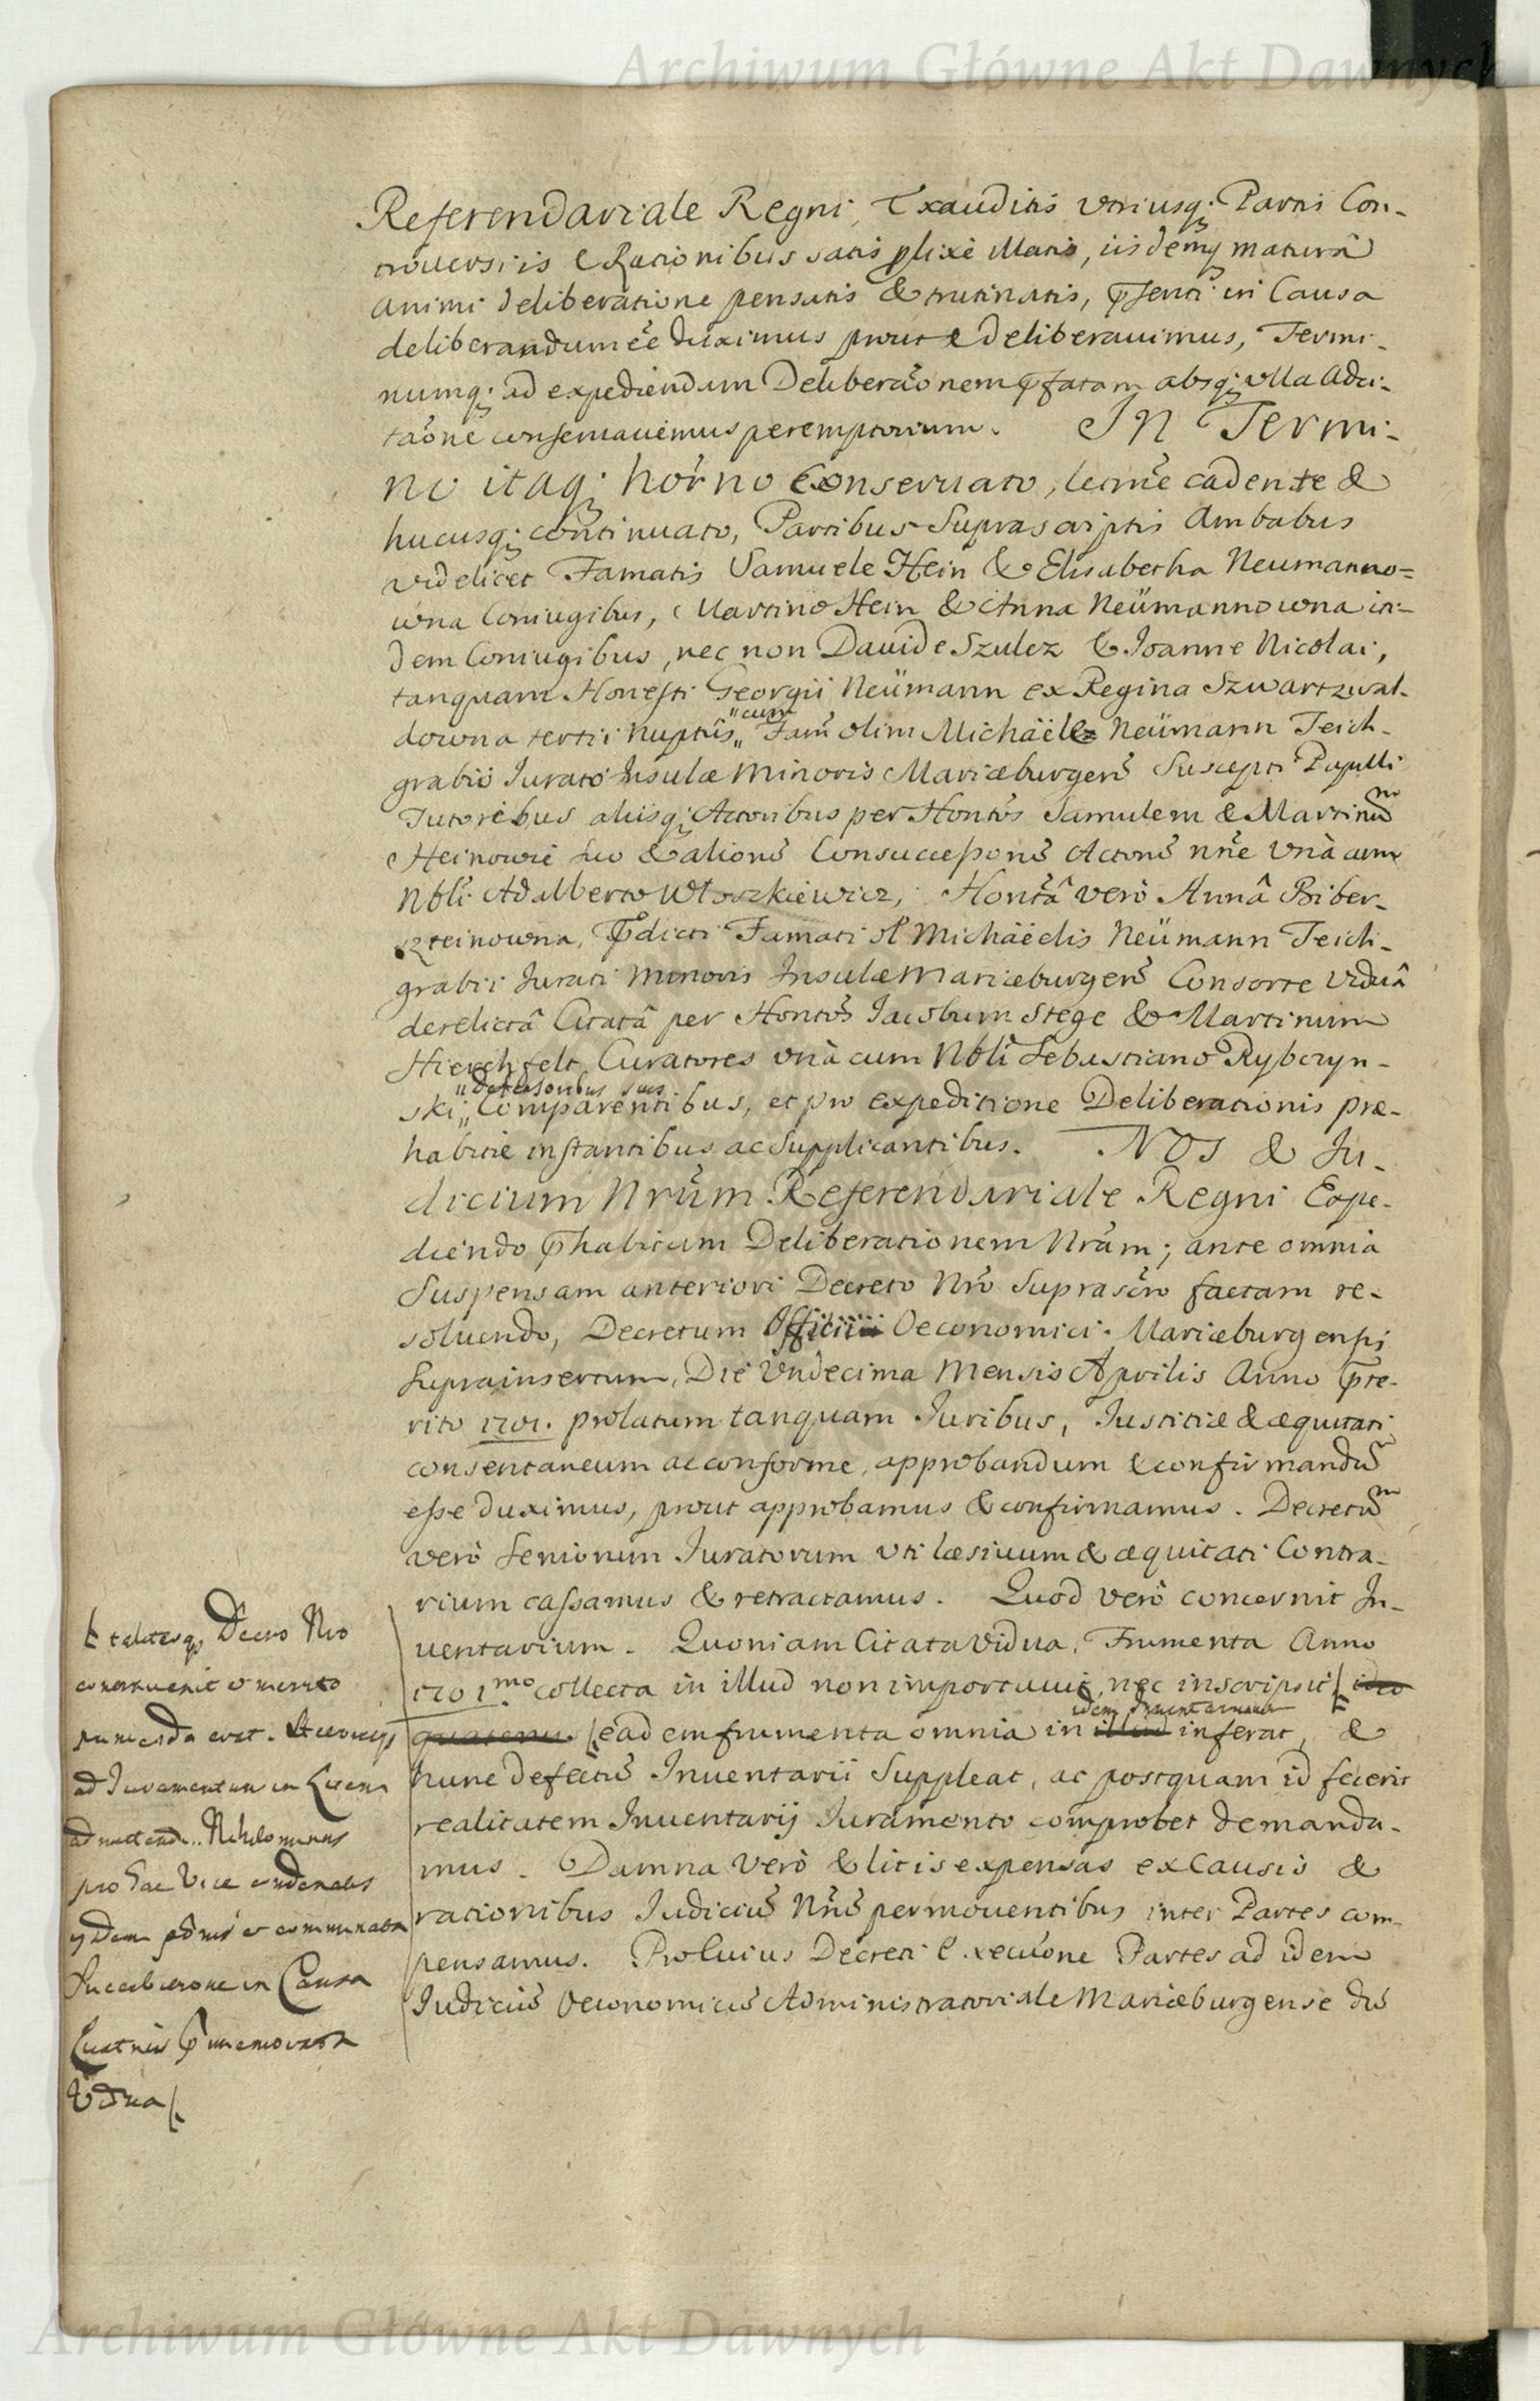 Archiwum Główne Akt Dawnych
Referendariale Regni, Exauditis vtriusq; Partis Con-
trouersiis & Rationibus satis plixè illatis, iisdemq; maturâ
animi deliberatione pensatis & trutinatis, psenti in Causa
deliberandum eē duximus prout & deliberauimus, Termi-
numq; ad expediendam Deliberaōnem pfatam absq; vlla Adci-
taōne conseruauimus peremptorium. In Termi-
no itaq; horno Conseruato, legitime cadente &
hucusq; continuato, Partibus Suprascriptis Ambabus
videlicet Famatis Samuele Hein & Elisabetha Neumanno=
wna Coniugibus, Martino Hein & Anna Neümannowna iti-
dem Coniugibus, nec non Dauide Szulcz & Joanne Nicolai,
tanquam Honesti Georgii Neümann ex Regina Szwartzwal-
downa tertii nuptiis „cum„ Fam̃ olim Michaële Neümann Teich-
grabio Jurato Insulæ Minoris Mariæburgen̄ Suscepti Pupilli
Tutoribus aliisq; Actoribus per Hontōs Samulem & Martinūm
Heinowie suo & aliorū Consuccessorū Actorū nn̄e vnà cum
Nbli Adalberto Włoszkiewicz, Hontā verò Annâ Biber-
szteinowna, Pdicti Famati ol Michäëlis Neümann Teich-
grabii Jurati Minoris Insulæ Mariæburgen̄ Consorte viduâ
derelictâ Citatâ per Hontōs Jacobum Stege & Martinum
Hierchfelt Curatores vnà cum Nbli Sebastiano Rybczyn-
„defensoribus suis
ski„ Comparentibus, et pro expeditione Deliberationis præ-
habitæ instantibus ac Supplicantibus. NOS & Ju-
dicium Nrūm Referendariale Regni Expe-
diendo phabitam Deliberationem Nrām; ante omnia
Suspensam anteriori Decreto Nrō Suprascrō factam re-
soluendo, Decretum Officiii Oeconomici Mariæburgensi
Suprainsertum, Die Vndecima Mensis Aprilis Anno pte-
rito 1701. prolatum tanquam Juribus, Justitiæ & æquitati
consentaneum ac conforme, approbandum & confirmandū
esse duximus, prout approbamus & confirmamus. Decretūm
verò Seniorum Juratorum vti læsiuum & æquitati Contra-
rium cassamus & retractamus. Quod verò concernit In-
uentarium. Quoniam Citata Vidua, Frumenta Anno
1701mo collecta in illud non importauit, nec inscripsit ideo
quatenus eadem frumenta omnia in illud idem Inuentarium inferat, &
hunc defectū Inuentarii Suppleat, ac postquam id fecerit
realitatem Inuentarij Juramento comprobet demanda-
mus. Damna verò & litis expensas ex Causis &
rationibus Judiciū Nrūm permouentibus inter Partes com-
pensamus. Pro huius Decreti Executōne Partes ad idem
Judiciū Oeconomicū Administratoriale Mariæburgense dus
Decro Nro
et merito
punienda erat.
ad Juramentum in
Nihilominus
pro hac Vice
in Causa
Vidua
Archiwum Główne Akt Dawnych